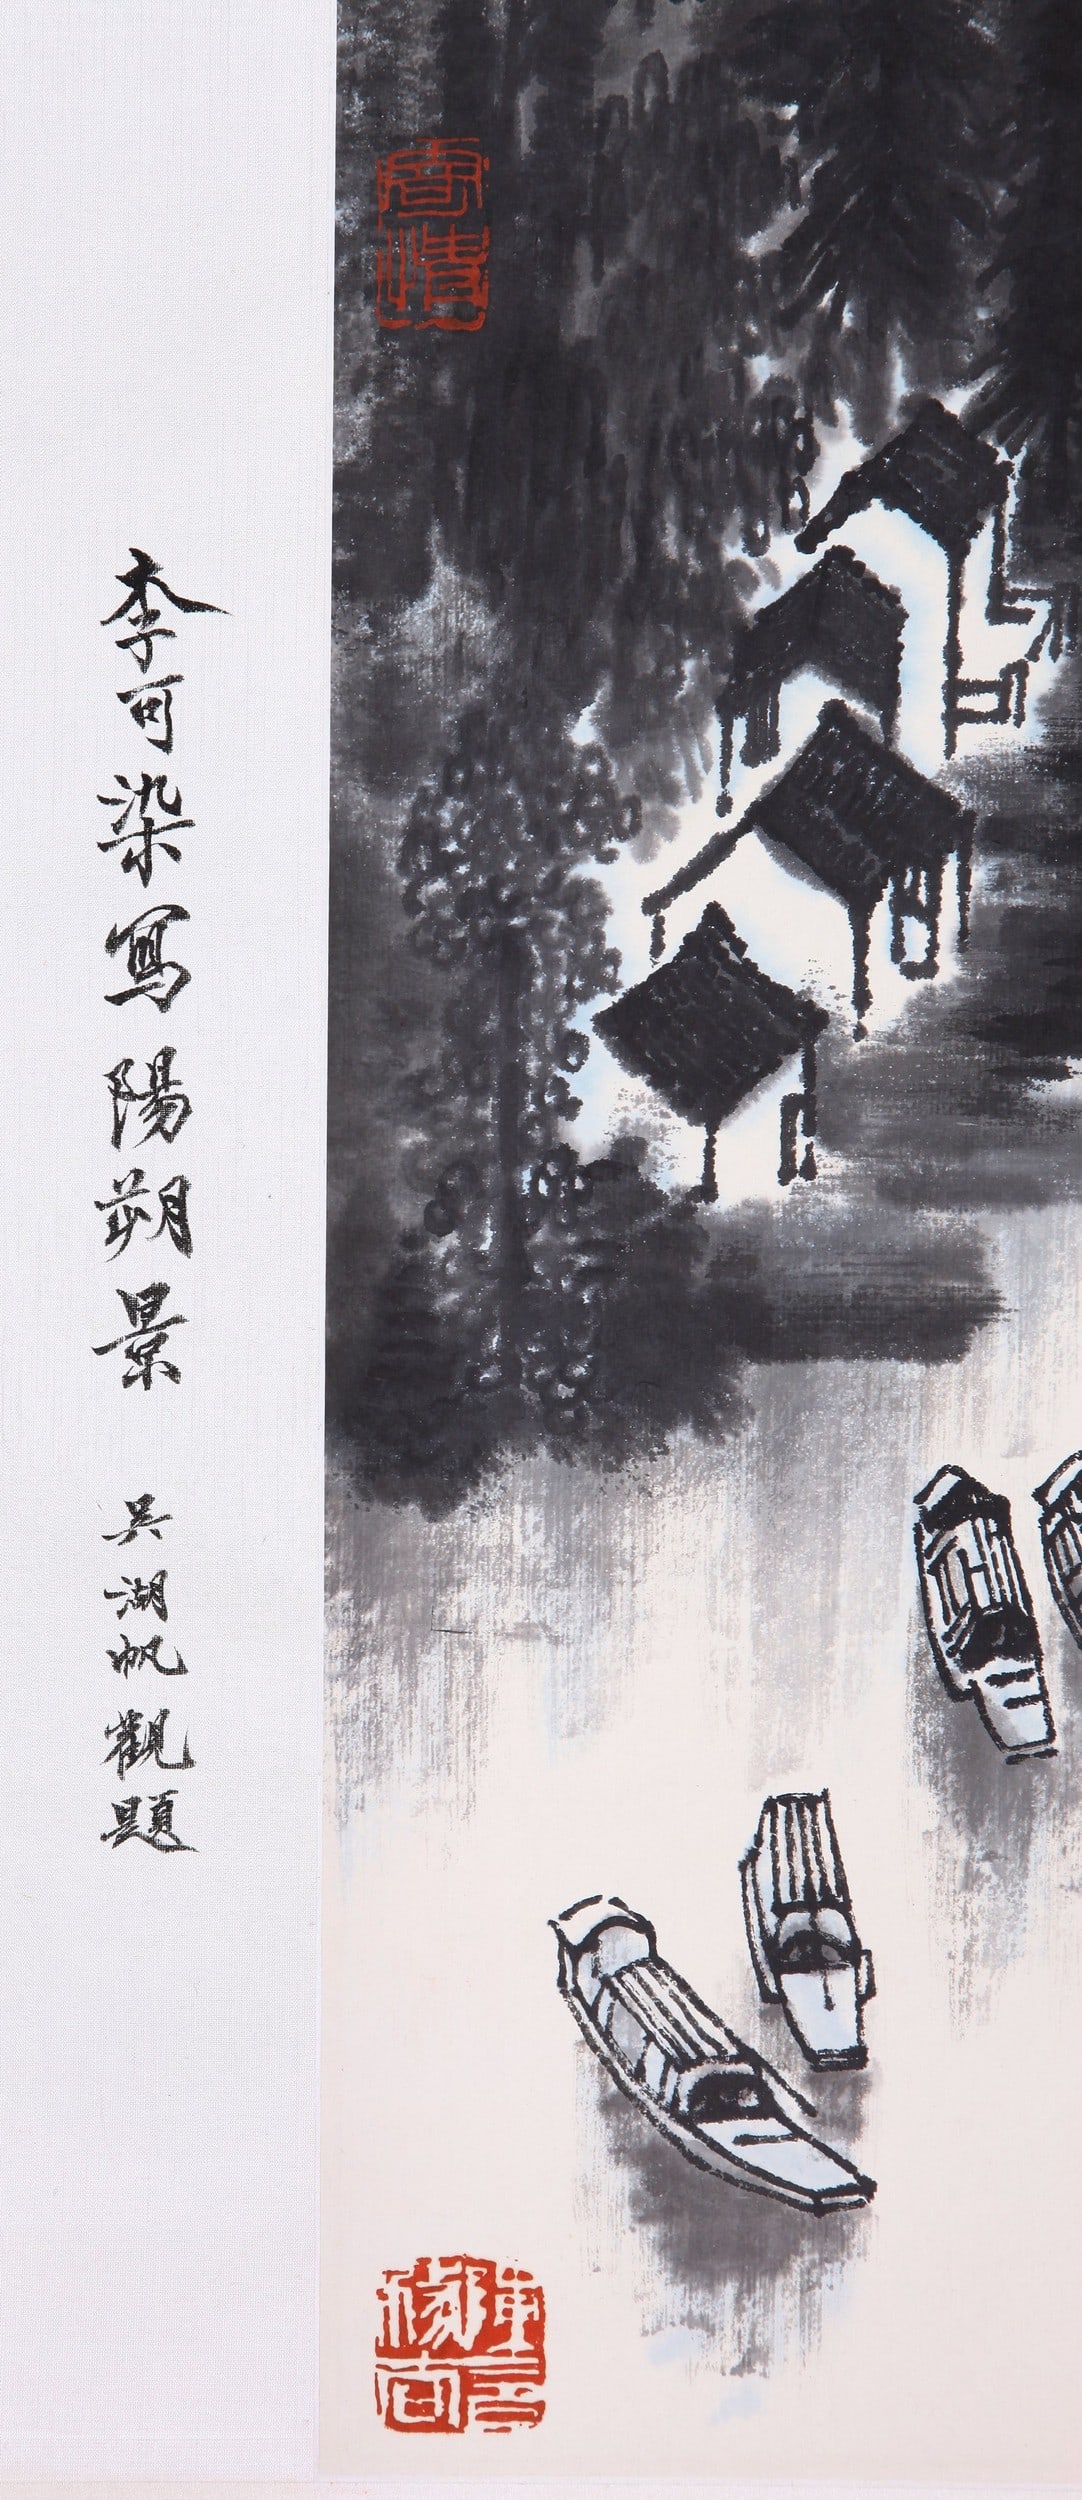 李可染寫陽朔景 吳湖帆觀題